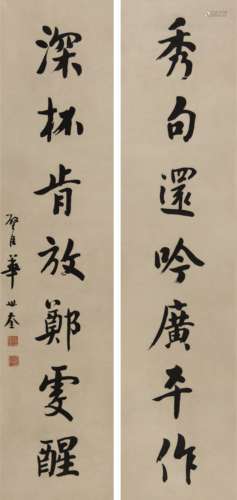 秀句還吟廣平作
深杯肯放鄭虔醒
癸酉華世奎